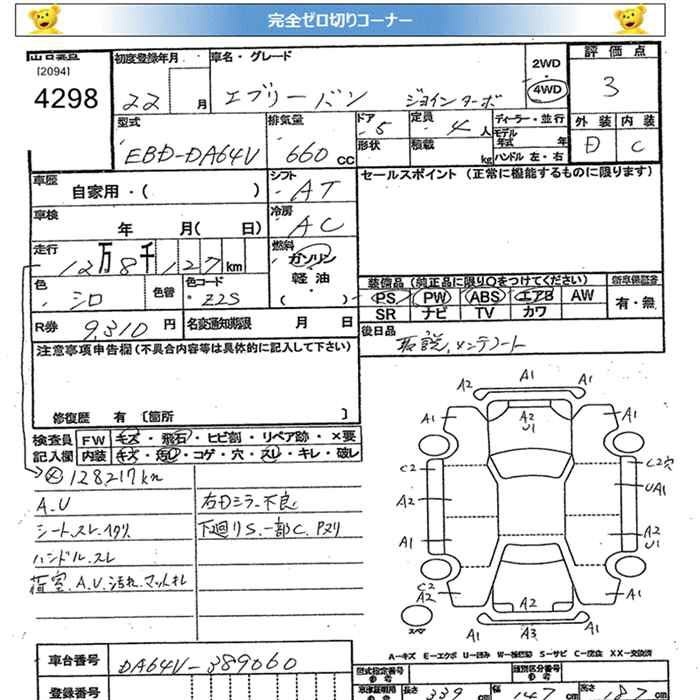 完全ゼロ切りコーナー
[2094]
4298
初度登録年月
22 月
車名・グレード
エブリーバン ジョインターボ
2WD
4WD
評価点
3
外装 内装
D C
型式
EBD-DA64V
排気量
660 cc
ドア
5
形状
定員
4 人
積載
kg
ディーラー・並行
モデル
年式 年
ハンドル 左・右
車歴
自家用・( )
シフト
AT
セールスポイント (正常に機能するものに限ります)
車検
年 月( 日)
冷房
AC
走行
12万8千127km
燃料
ガソリン
軽油
( )
色
シロ
色替
色コード
Z2S
装備品 (純正品に限り○をつけてください)
PS PW ABS エアB AW
SR ナビ TV カワ
新車保証書
有・無
R券
9,310 円
名変通知期限 月 日
後日品
取説、メンテノート
注意事項申告欄(不具合内容等は具体的に記入して下さい)
修復歴 有 [箇所 ]
検査員
記入欄
FW キズ・飛石・ヒビ割・リペア跡・×要
内装 キズ・汚レ・コゲ・穴・スレ・キレ・破レ
128217km
A.U
シートスレ.ヘタリ
ハンドル.スレ
荷室.A.U.汚れ.マットキレ
右Dミラー不良
下廻りS.一部C.Pヌリ
A2 A1 A1
A1 A2 U1 A1
C2 C2穴
A2 UA1
A1 A2 U1
C2 A2 A2 A1
スペア A1 A3 A1
A-キズ E-エクボ U-凹み W-補修跡 S-サビ C-腐食 XX-交換済
車台番号
DA64V-389060
登録番号
型式指定番号
類別区分番号
長さ 339 cm 幅 147 cm 高さ 187 cm